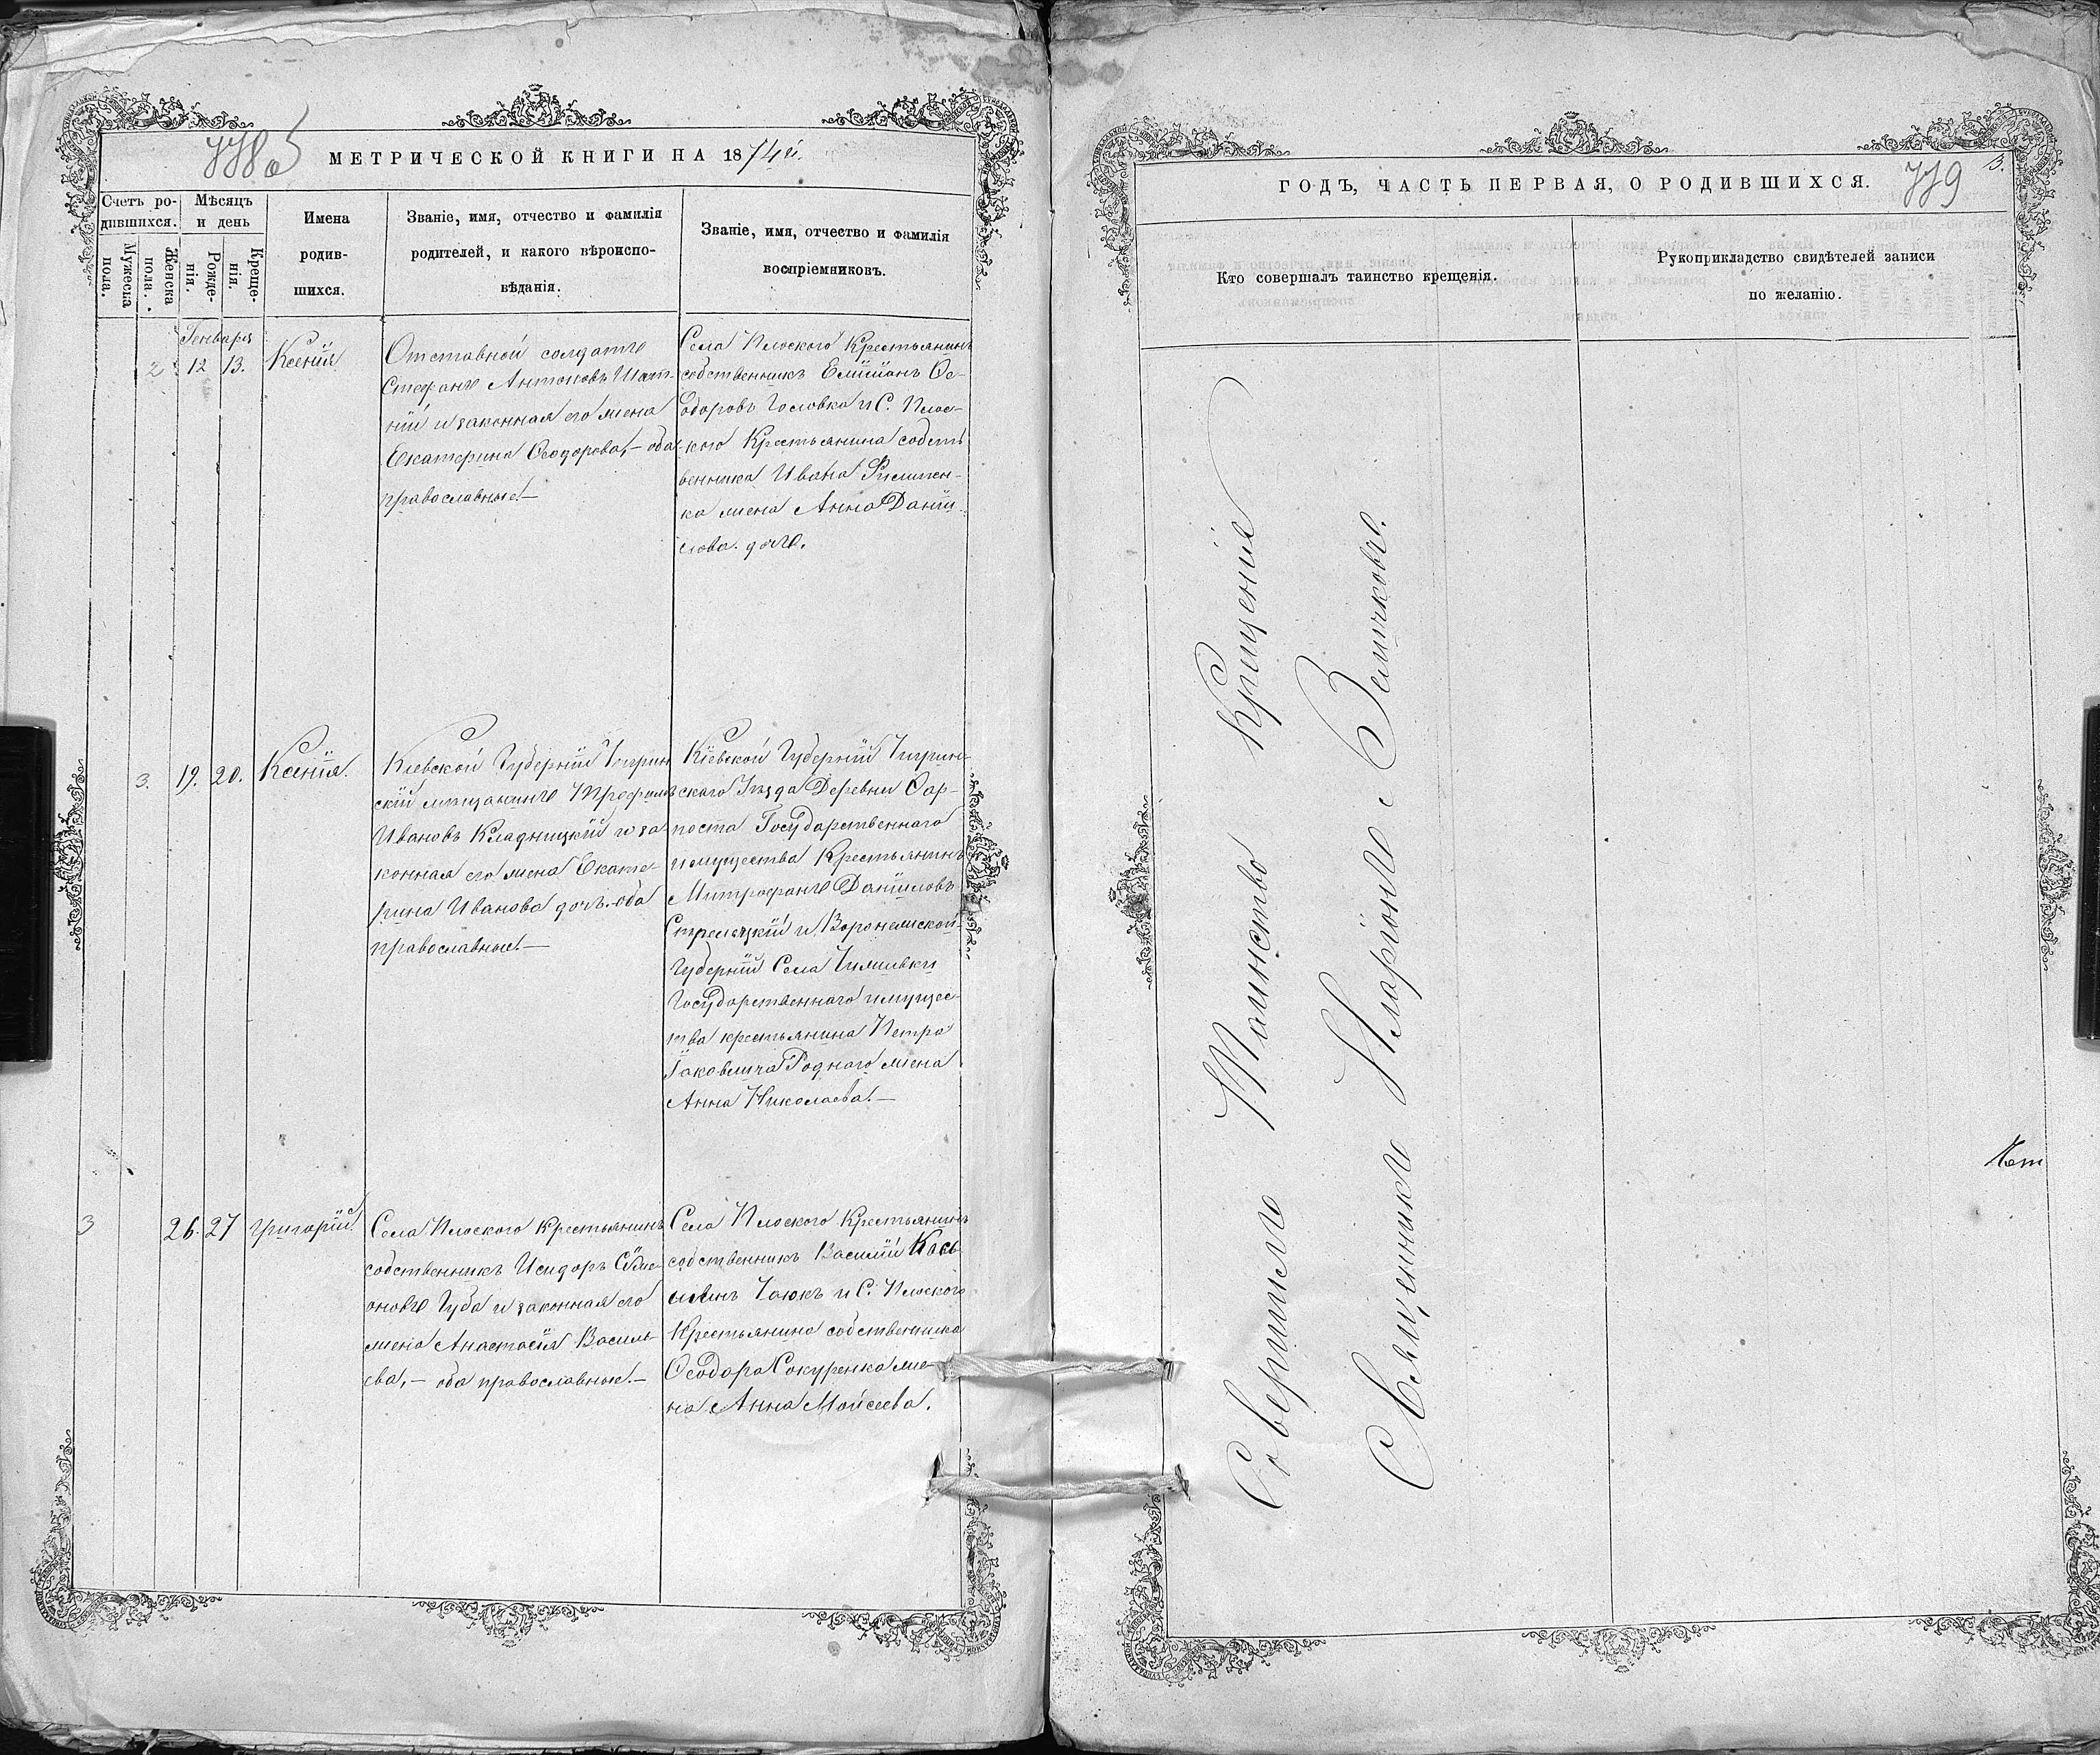 778 об
МЕТРИЧЕСКОЙ КНИГИ НА 1874й.
Счетъ ро-
дившихся.
Мѣсяцъ
и день
Мужеска
пола.
Женска
пола.
Рожде-
нія.
Креще-
нія.
Имена
родив-
шихся.
Званіе, имя, отчество и фамилія
родителей, и какого вѣроиспо-
вѣданія.
Званіе, имя, отчество и фамилія
воспріемниковъ.
Генваря
2 12 13. Ксенія
Отставной солдатъ
Стефанъ Антоновъ
и законная его жена
Екатерина Ѳеодорова, — оба
православные. —
Села Плоского Крестьянинъ
собственникъ Ѳе-
одоровъ Головко и С. Плос-
кого Крестьянина собст
венника Ивана Филипен-
ка жена Анна Даніи-
лова дочь.
3. 19. 20. Ксенія.
Кіевской Губерніи Чигрин
скій мѣщанинъ Трофимъ
Ивановъ Кладницкій и за-
конная его жена Екате-
рина Иванова дочь. — оба
православные. —
Кіевской Губерніи Чигрин-
ского Уѣзда Деревни Фар-
поста Государственнаго
имущества Крестьянинъ
Митрофанъ Даніиловъ
Стрелецкій и Воронежской
Губерніи Села
Государственнаго имущес-
тва крестьянина Петра
Іаковлича Роднаго жена
Анна Николаева. —
3 26. 27 Григорій.
Села Плоского Крестьянинъ
собственникъ Исидоръ Сѵме-
оновъ Губа и законная его
жена Анастасія Василь-
ева, — оба православные. —
Села Плоского Крестьянинъ
собственникъ Василій Кось
минъ Чаюкъ и С. Плоского
Крестьянина собственника
Ѳеодора Сокуренка же-
на Анна Мойсеева.
ГОДЪ, ЧАСТЬ ПЕРВАЯ, О РОДИВШИХСЯ.
779
3.
Кто совершалъ таинство крещенія.
Рукоприкладство свидѣтелей записи
по желанію.
Совершилъ Таинство Крещенія
Священникъ Иларіонъ Величковъ.